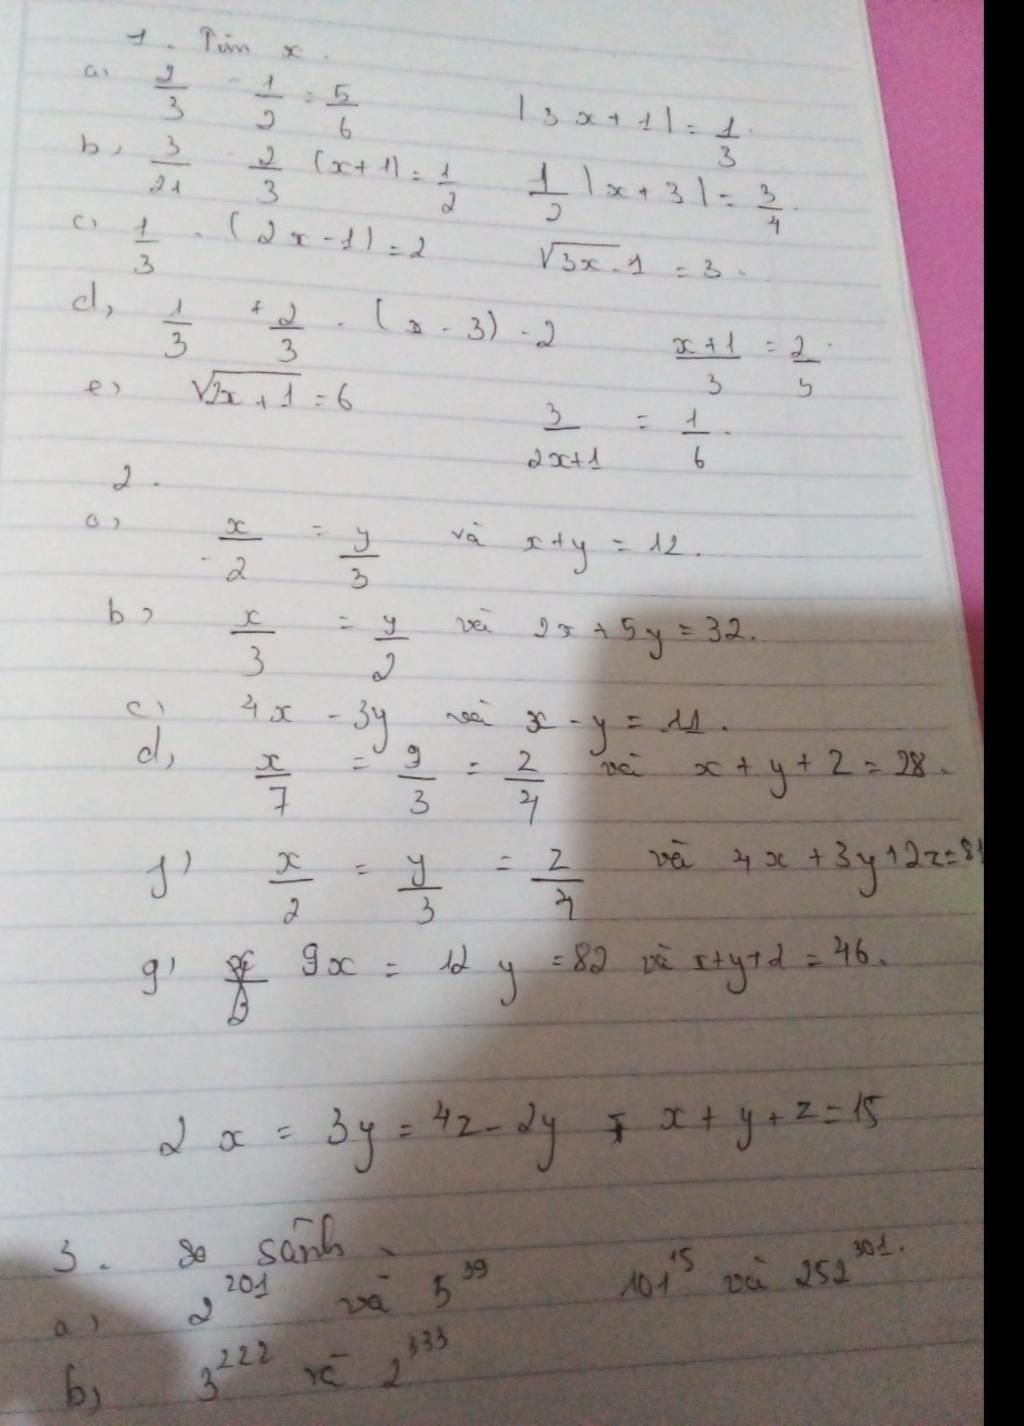 1. Tìm x.
a, 2/3 - 1/2 = 5/6 |3x+1| = 1/3.
b, 3/21 - 2/3 (x+1) = 1/2 1/2 |x+3| = 3/4.
c, 1/3 . (2x-1) = 2 √3x-1 = 3.
d, 1/3 + 2/3 . (x-3) - 2 x+1/3 = 2/5.
e, √2x+1 = 6 3/2x+1 = 1/6.
2.
a, x/-2 = y/3 và x+y = 12.
b, x/3 = y/2 và 2x+5y = 32.
c, 4x - 3y và x-y = 11.
d, x/7 = y/3 = z/4 và x+y+z = 28.
f, x/2 = y/3 = z/4 và 4x+3y+2z=81
g, 9x = 12y = 82 và x+y+z = 46.
2x = 3y = 4z - 2y x+y+z = 15
3. So sánh.
a, 2^201 và 5^39 101^15 và 252^301.
b, 3^222 và 2^333